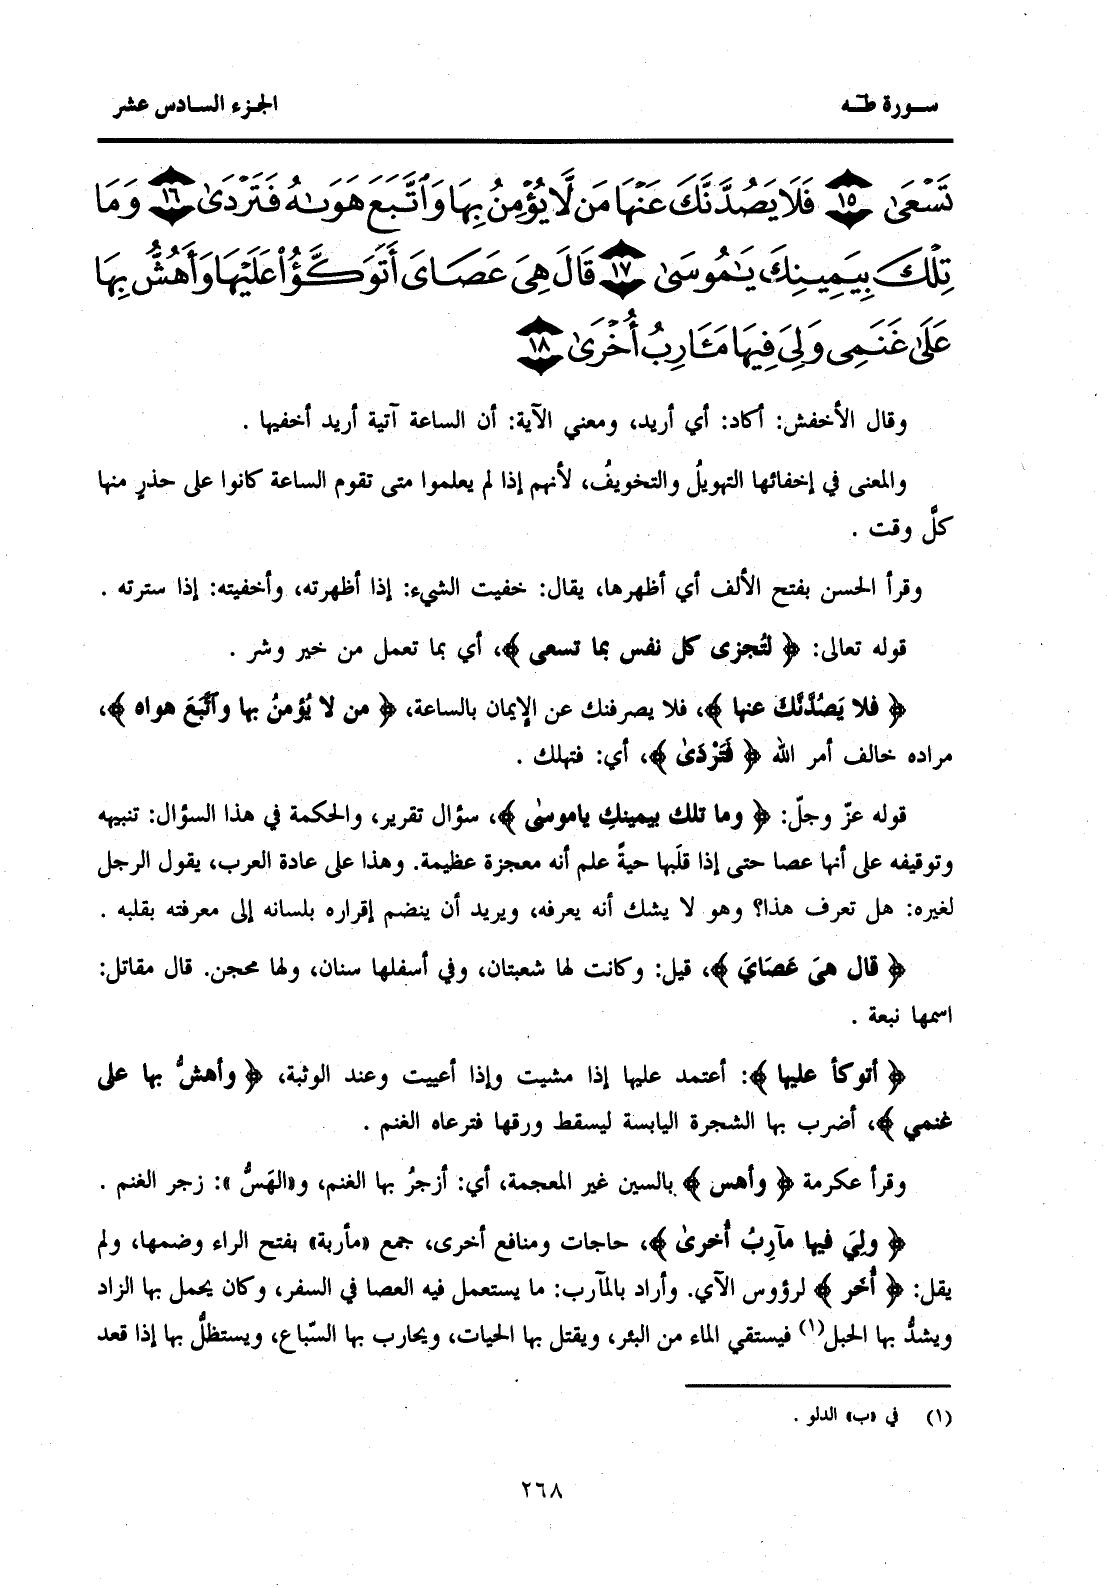 سورة طه
الجزء السادس عشر
تَسْعَىٰ ١٥ فَلَا يَصُدَّنَّكَ عَنْهَا مَن لَّا يُؤْمِنُ بِهَا وَاتَّبَعَ هَوَىٰهُ فَتَرْدَىٰ ١٦ وَمَا
تِلْكَ بِيَمِينِكَ يَٰمُوسَىٰ ١٧ قَالَ هِيَ عَصَايَ أَتَوَكَّؤُاْ عَلَيْهَا وَأَهُشُّ بِهَا
عَلَىٰ غَنَمِي وَلِيَ فِيهَا مَـَٔارِبُ أُخْرَىٰ ١٨
وقال الأخفش: أكاد: أي أريد، ومعني الآية: أن الساعة آتية أريد أخفيها .
والمعنى في إخفائها التهويلُ والتخويفُ، لأنهم إذا لم يعلموا متى تقوم الساعة كانوا على حذرٍ منها
كلَّ وقت .
وقرأ الحسن بفتح الألف أي أظهرها، يقال: خفيت الشيء: إذا أظهرته، وأخفيته: إذا سترته .
قوله تعالى: ﴿ لتُجزى كل نفس بما تسعى ﴾، أي بما تعمل من خير وشر .
﴿ فلا يَصُدَّنَّكَ عنها ﴾، فلا يصرفنك عن الإيمان بالساعة، ﴿ من لا يُؤمنُ بها واتَّبَعَ هواه ﴾،
مراده خالف أمر الله ﴿ فَتَرْدَىٰ ﴾، أي: فتهلك .
قوله عزّ وجلّ: ﴿ وما تلك بيمينكِ ياموسٰى ﴾، سؤال تقرير، والحكمة في هذا السؤال: تنبيهه
وتوقيفه على أنها عصا حتى إذا قلَبها حيةً علم أنه معجزة عظيمة. وهذا على عادة العرب، يقول الرجل
لغيره: هل تعرف هذا؟ وهو لا يشك أنه يعرفه، ويريد أن ينضم إقراره بلسانه إلى معرفته بقلبه .
﴿ قال هيَ عَصَايَ ﴾، قيل: وكانت لها شعبتان، وفي أسفلها سنان، ولها محجن. قال مقاتل:
اسمها نبعة .
﴿ أتوكأ عليها ﴾: أعتمد عليها إذا مشيت وإذا أعييت وعند الوثبة، ﴿ وأهشُّ بها على
غنمي ﴾، أضرب بها الشجرة اليابسة ليسقط ورقها فترعاه الغنم .
وقرأ عكرمة ﴿ وأهس ﴾ بالسين غير المعجمة، أي: أزجرُ بها الغنم، و«الهَسُّ »: زجر الغنم .
﴿ ولِيَ فيها مآرِبُ أُخرىٰ ﴾، حاجات ومنافع أخرى، جمع «مأربة» بفتح الراء وضمها، ولم
يقل: ﴿ أُخَر ﴾ لرؤوس الآي. وأراد بالمآرب: ما يستعمل فيه العصا في السفر، وكان يحمل بها الزاد
ويشدُّ بها الحبل(١) فيستقي الماء من البئر، ويقتل بها الحيات، ويحارب بها السّباع، ويستظلُّ بها إذا قعد
(١) في «ب» الدلو .
٢٦٨